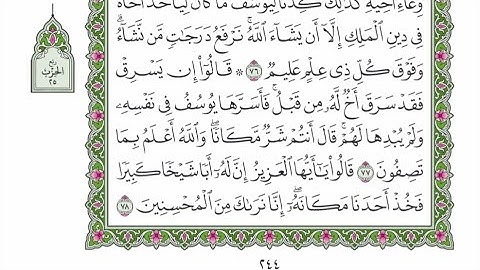 وِعَآءِ أَخِيهِ كَذَٰلِكَ كِدْنَا لِيُوسُفَ مَا كَانَ لِيَأْخُذَ أَخَاهُ
فِى دِينِ ٱلْمَلِكِ إِلَّآ أَن يَشَآءَ ٱللَّهُ ۚ نَرْفَعُ دَرَجَٰتٍ مَّن نَّشَآءُ ۗ
وَفَوْقَ كُلِّ ذِى عِلْمٍ عَلِيمٌ ٧٦ ۞ قَالُوٓا۟ إِن يَسْرِقْ
فَقَدْ سَرَقَ أَخٌ لَّهُۥ مِن قَبْلُ ۚ فَأَسَرَّهَا يُوسُفُ فِى نَفْسِهِۦ
وَلَمْ يُبْدِهَا لَهُمْ ۚ قَالَ أَنتُمْ شَرٌّ مَّكَانًا ۖ وَٱللَّهُ أَعْلَمُ بِمَا
تَصِفُونَ ٧٧ قَالُوا۟ يَٰٓأَيُّهَا ٱلْعَزِيزُ إِنَّ لَهُۥٓ أَبًا شَيْخًا كَبِيرًا
فَخُذْ أَحَدَنَا مَكَانَهُۥٓ ۖ إِنَّا نَرَىٰكَ مِنَ ٱلْمُحْسِنِينَ ٧٨
ربع
الحزب
٢٥
٢٤٤